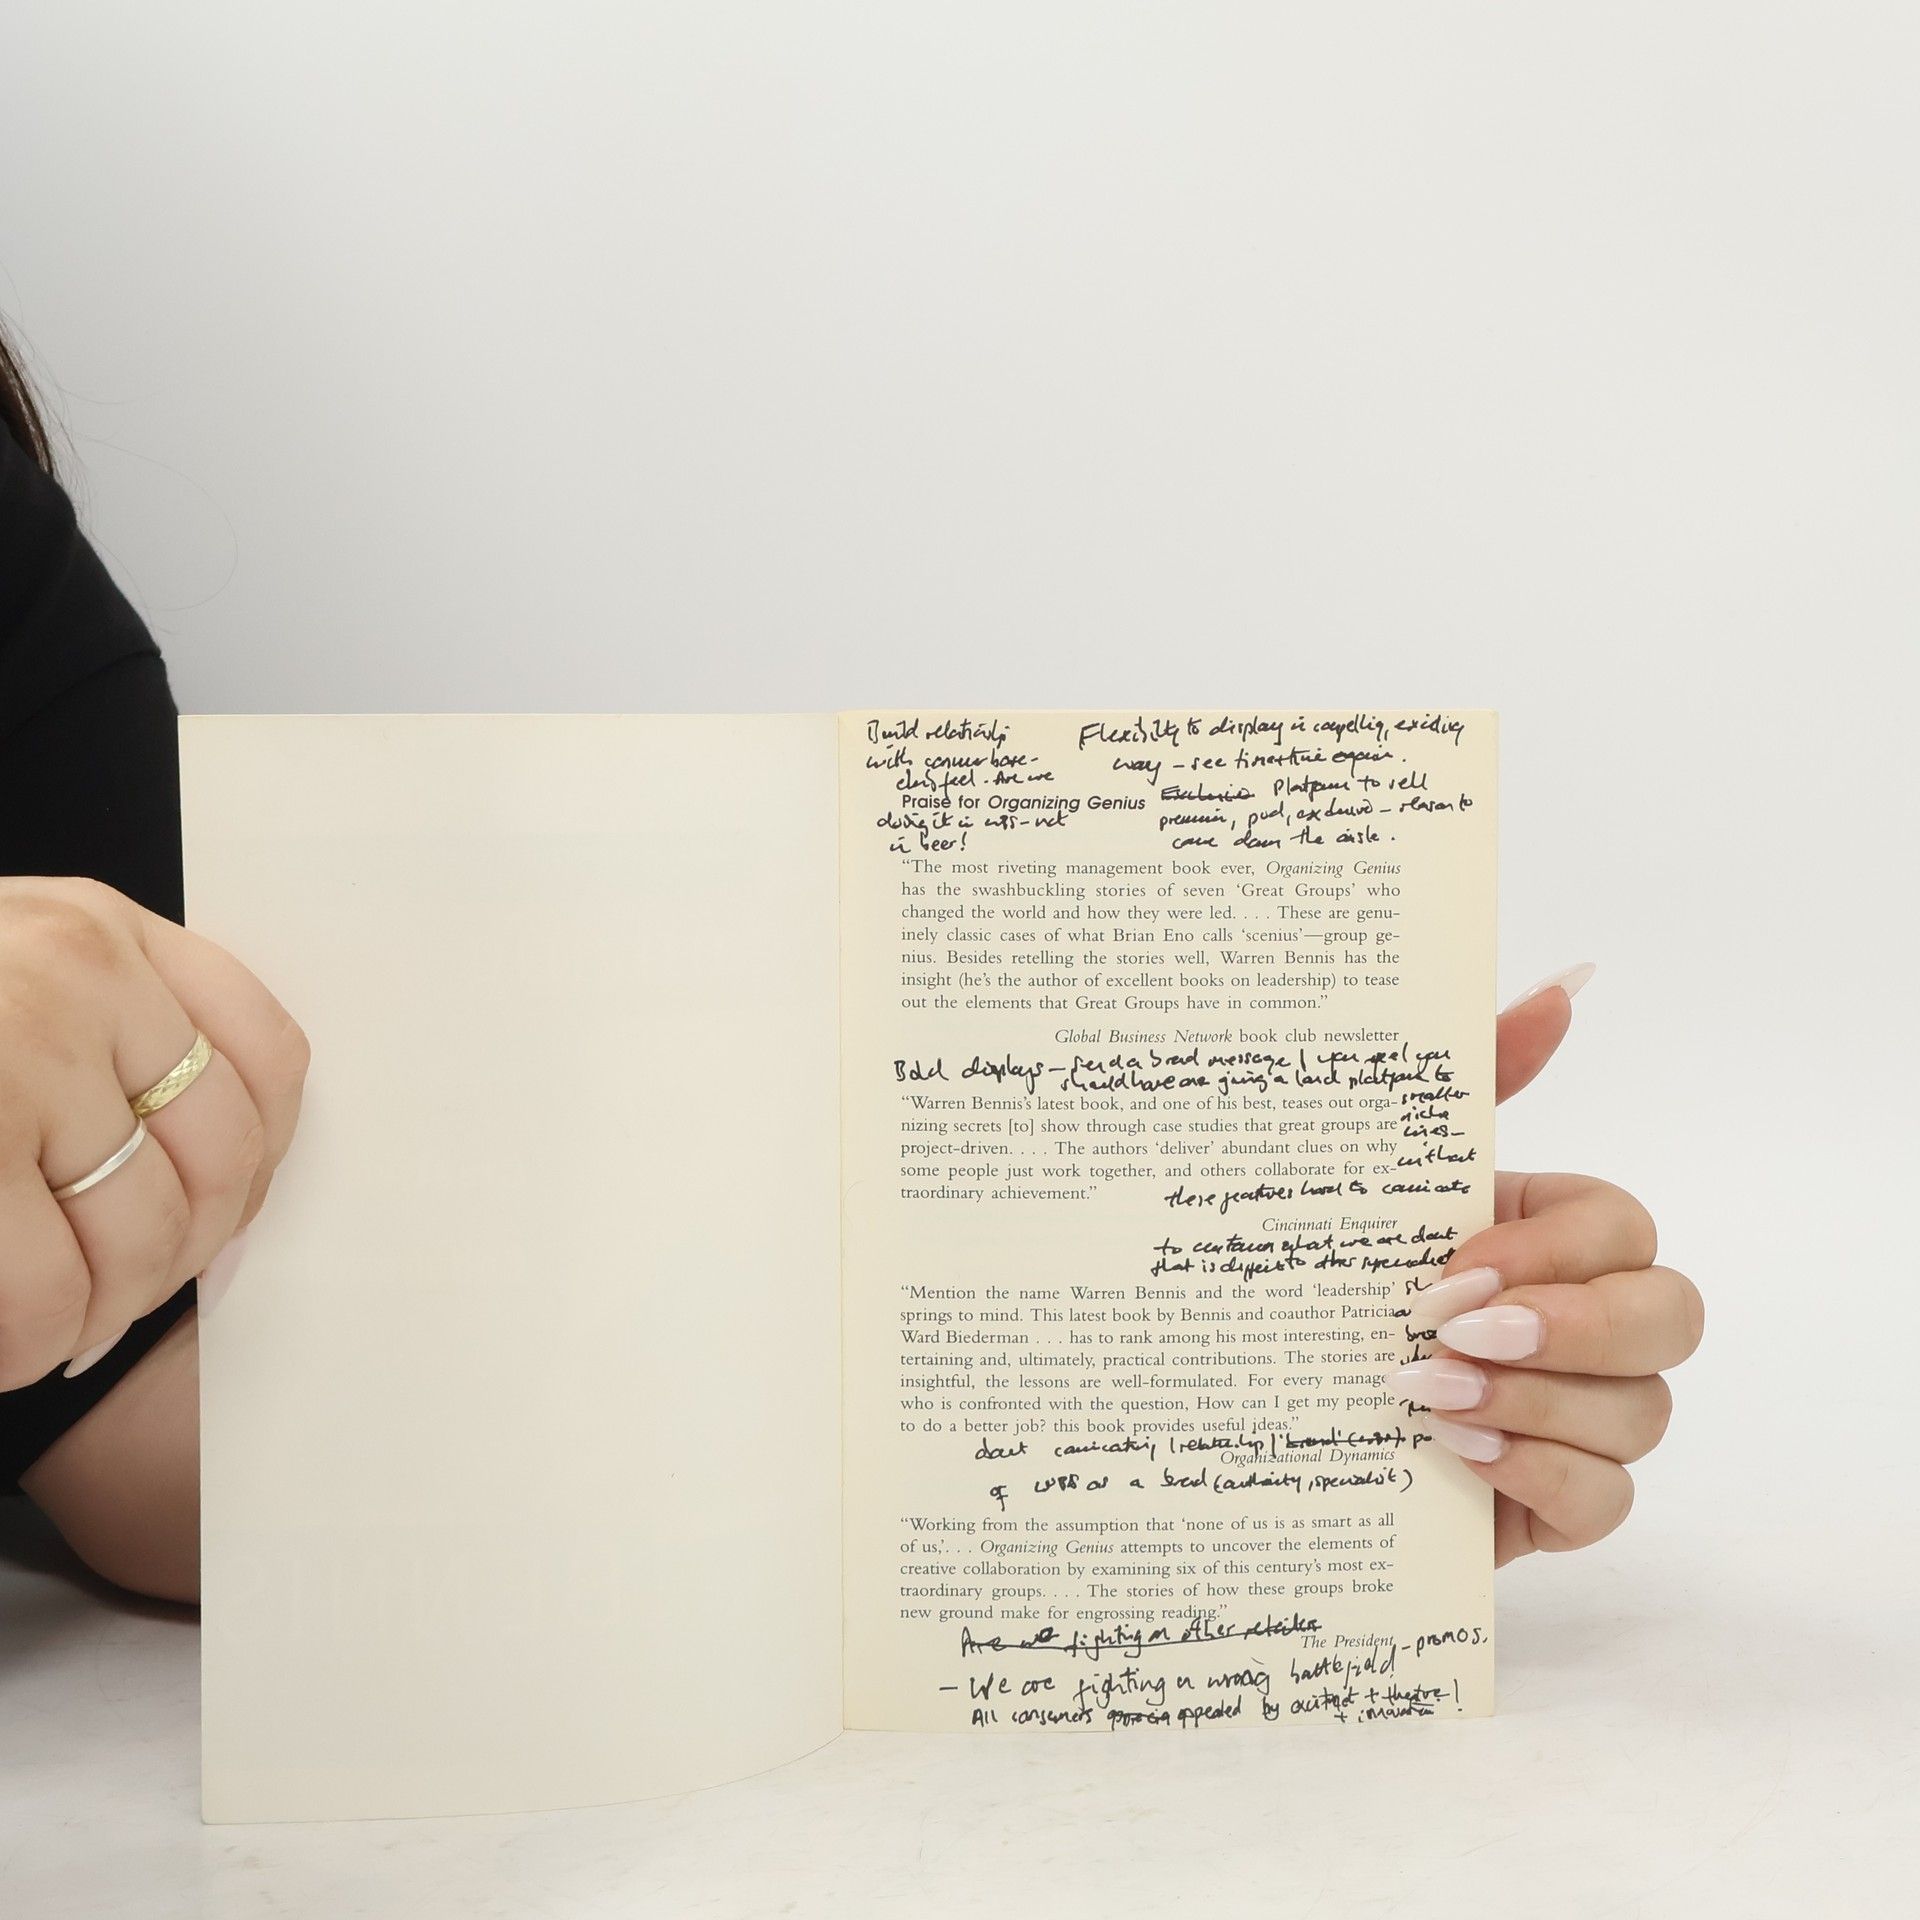 Build relationship
with consumer base -
club feel. Are we
Praise for Organizing Genius
doing it in - not
in beer!
Flexibility to display in exciting
way - see time + time again.
Platform to sell
premium, exclusive - reason to
come down the aisle.
“The most riveting management book ever, Organizing Genius
has the swashbuckling stories of seven ‘Great Groups’ who
changed the world and how they were led. . . . These are genu-
inely classic cases of what Brian Eno calls ‘scenius’—group ge-
nius. Besides retelling the stories well, Warren Bennis has the
insight (he’s the author of excellent books on leadership) to tease
out the elements that Great Groups have in common.”
Global Business Network book club newsletter
Bold displays - send a brand message / you feel you
should have one giving a loud platform to
“Warren Bennis’s latest book, and one of his best, teases out orga-
nizing secrets [to] show through case studies that great groups are
project-driven. . . . The authors ‘deliver’ abundant clues on why
some people just work together, and others collaborate for ex-
traordinary achievement.”
smaller
niche
lines -
without
these features hard to
Cincinnati Enquirer
to customer what we are about
that is different to other specialist
“Mention the name Warren Bennis and the word ‘leadership’
springs to mind. This latest book by Bennis and coauthor Patricia
Ward Biederman . . . has to rank among his most interesting, en-
tertaining and, ultimately, practical contributions. The stories are
insightful, the lessons are well-formulated. For every manage
who is confronted with the question, How can I get my people
to do a better job? this book provides useful ideas.”
about
Organizational Dynamics
of as a brand (authority, specialist)
“Working from the assumption that ‘none of us is as smart as all
of us,’. . . Organizing Genius attempts to uncover the elements of
creative collaboration by examining six of this century’s most ex-
traordinary groups. . . . The stories of how these groups broke
new ground make for engrossing reading.”
Are we fighting on other retailers
The President
- promos.
- We are fighting on wrong battlefield
All consumers appealed by excitement + theatre!
+ innovation